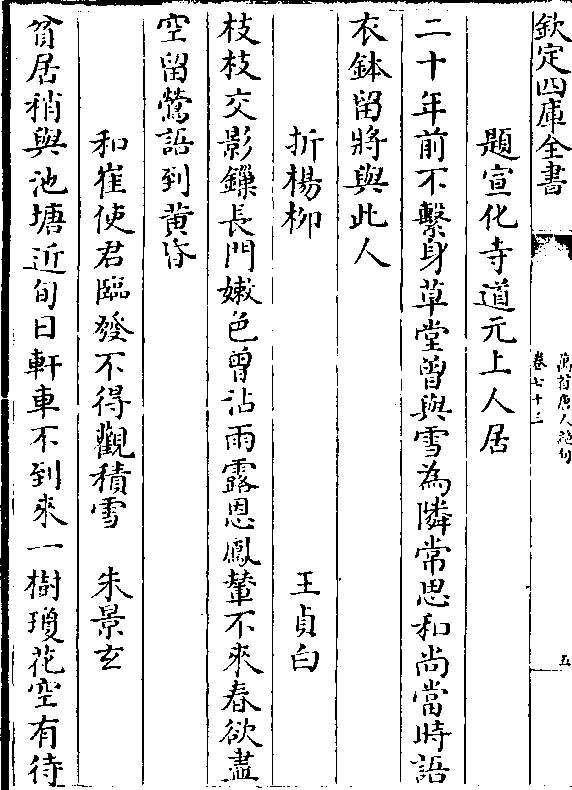 欽定四庫全書
萬首唐人絶句
卷七十三
五
題宣化寺道元上人居
二十年前不繫身草堂曾與雪為隣常思和尚當時語
衣鉢留將與此人
折楊柳 王貞白
枝枝交影鏁長門嫩色曾沾雨露恩鳳輦不來春欲盡
空留鶯語到黄昏
和崔使君臨發不得觀積雪 朱景玄
貧居稍與池塘近旬日軒車不到來一樹瓊花空有待